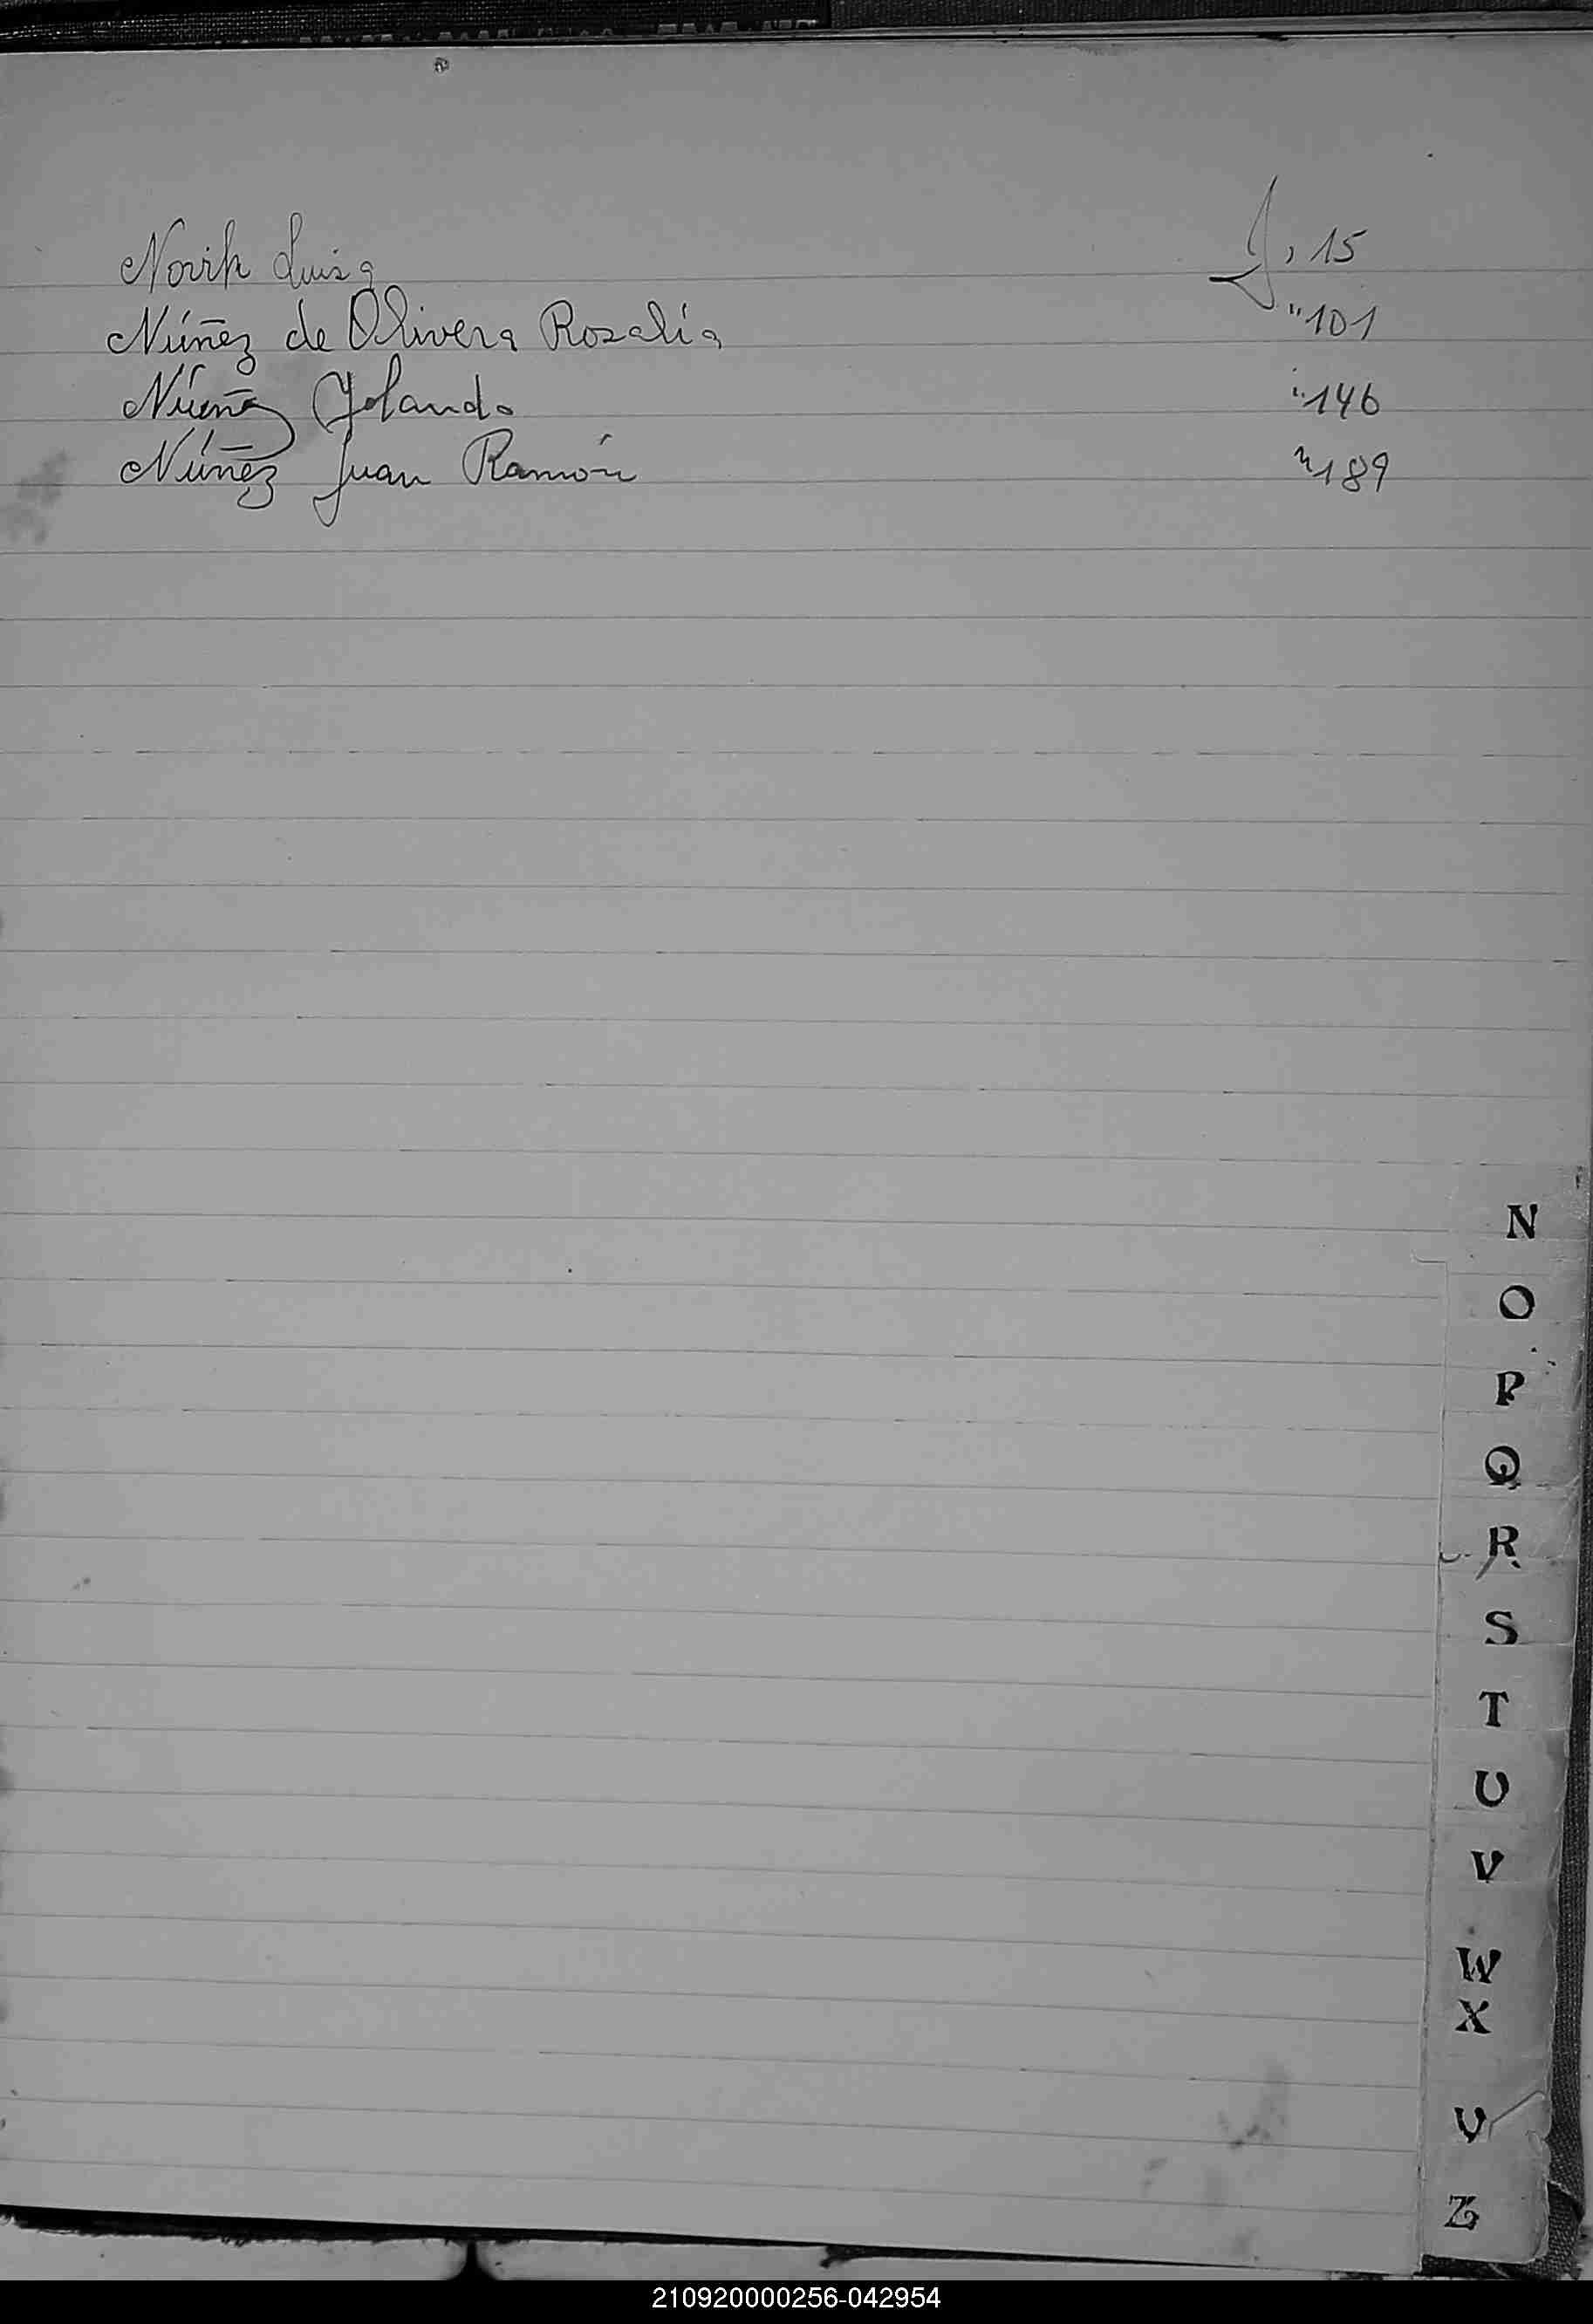 Novik Luisa J, 15
Núñez de Olivera Rosalía " 101
Núñez Yolanda " 146
Núñez Juan Ramón " 189
N
O
P
Q
R
S
T
U
V
W
X
Y
Z
210920000256-042954